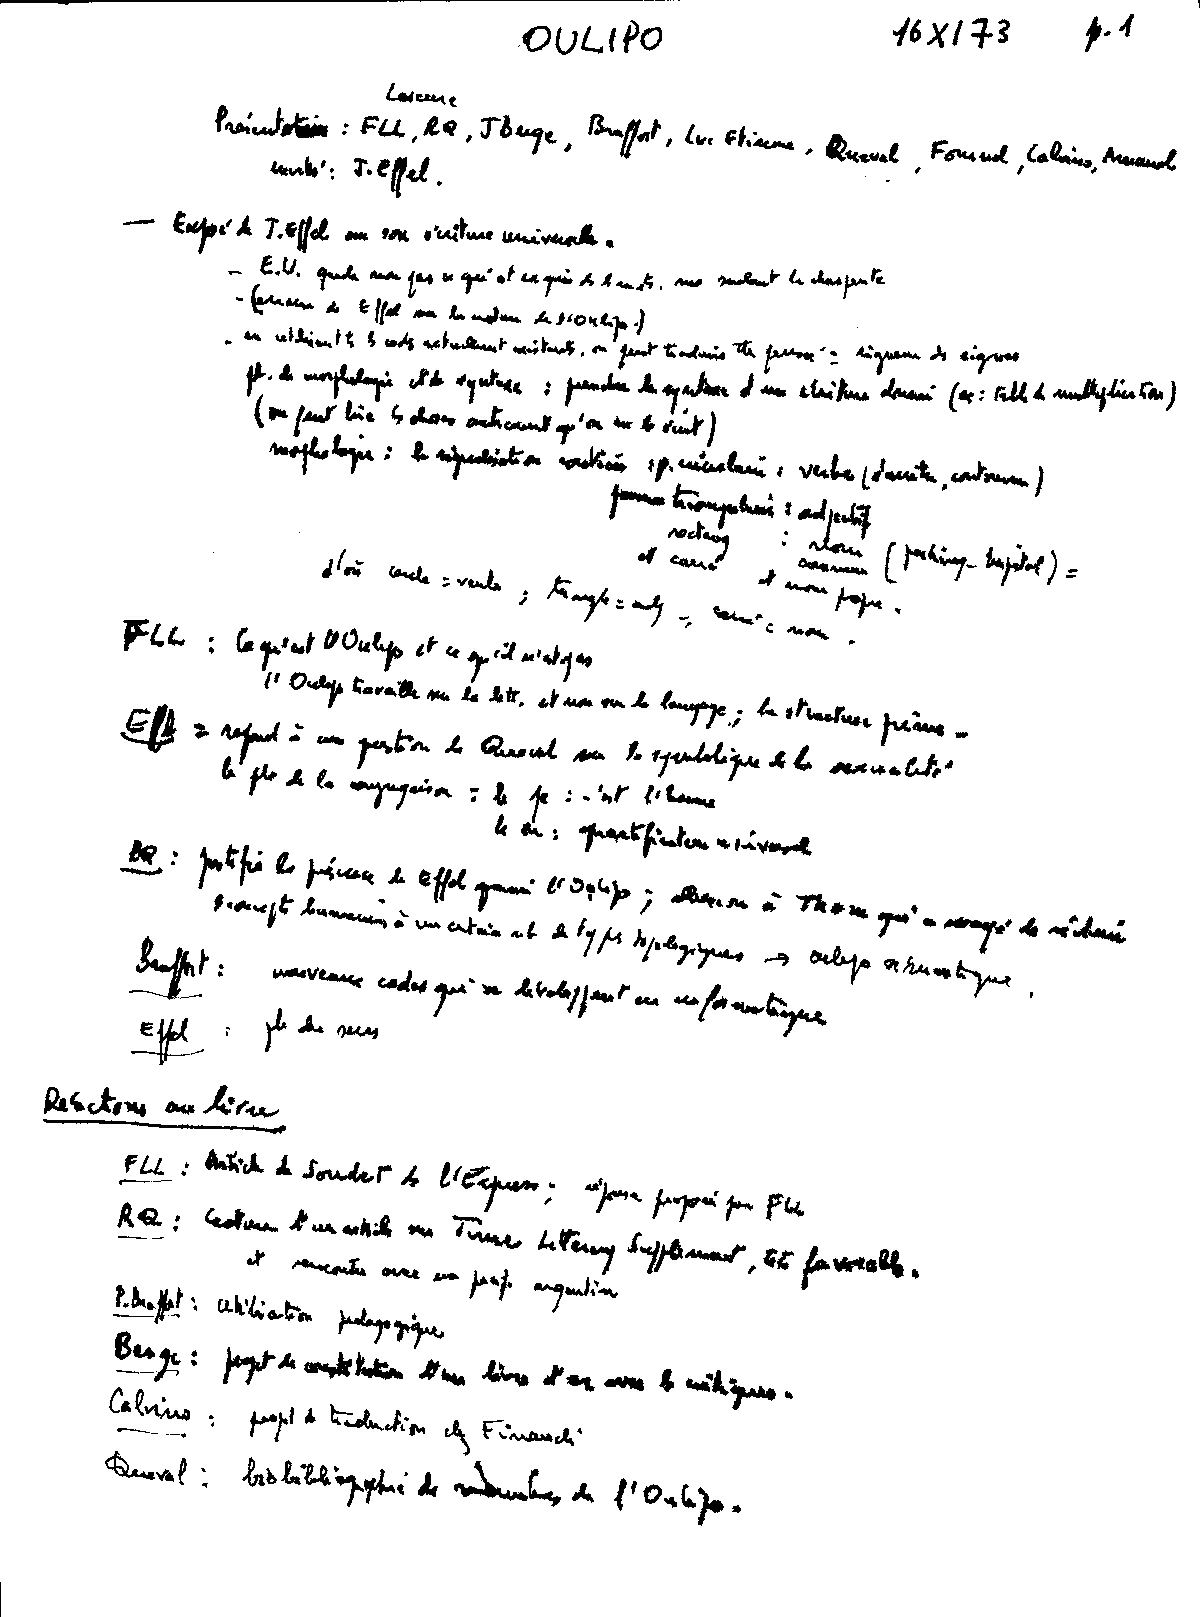 OULIPO 16 XI 73 p. 1
Lescure
Présentation : FLL, RQ, J Berge, Braffort, Luc Etienne, Queval, Fournel, Calvino, Arnaud
invité : J. Effel.
— Exposé de J. Effel sur son écriture universelle.
- E.U. garde non pas ce qui est ce qui mais seulement la charpente
- ( de Effel sur la notion de l'Oulipo.)
- en utilisant ts ls codes actuellement existants, on peut traduire tte pensée =
pb. de morphologie et de syntaxe : prendre la syntaxe d'une écriture donnée (ex : table de multiplication)
(on peut lire ls choses autrement qu'on ne ls écrit)
morphologie : la signalisation routière : p. circulaire : verbe (d'arrêter, contourner)
panneau triangulaire : adjectif
rectang : nom commun (parking - hôpital) =
et carré et nom propre.
d'où cercle = verbe ; triangle = adj ; carré = nom.
FLL : Ce qu'est l'Oulipo et ce qu'il n'est pas
l'Oulipo travaille sur la litt. et non sur le langage ; la structure prime.
Effel = répond à une question de Queval sur la symbolique de la sexualité
le pb de la conjugaison = le je : c'est l'homme
le on : quantificateur universel
RQ : justifie la présence de Effel parmi l'Oulipo ; allusion à Thom qui a essayé de réduire
concepts humains à un certain nb de types topologiques → oulipo sémantique.
Braffort : nouveaux codes qui se développent en informatique
Effel : pb du sens
Réactions au livre
FLL : Article de ds l'Express ; réponse proposée par FLL
RQ : Lecture d'un article du Times Literary Supplement, très favorable.
et rencontre avec un prof argentin
P. Braffort : utilisation pédagogique
Berge : projet de constitution d'un livre d'or avec ls critiques.
Calvino : projet de traduction chez Einaudi
Queval : biobibliographie de membres de l'Oulipo.